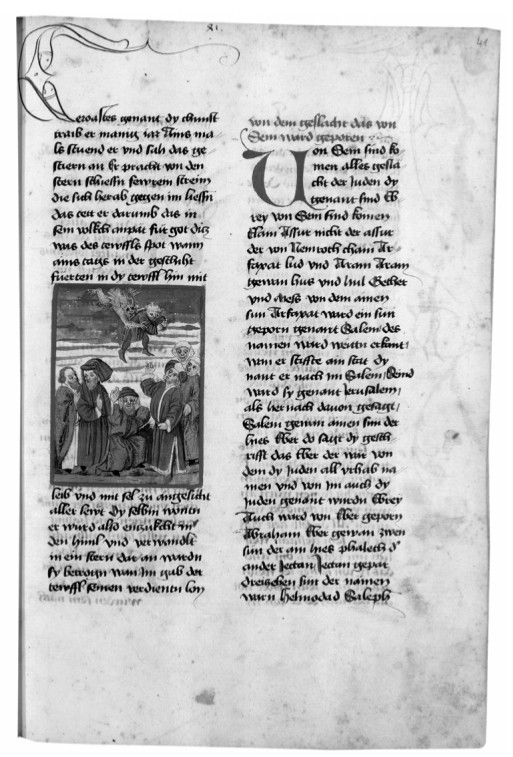 xi
41
Zeroastes genant dy chunst
traib er manig iar Ains ma
ls stuend er vnd sach das ge
stiern an Er pracht von den
stern schiessn fewrein strein
die sich herab gegen im liessn
das tett er darumb das in
sein volkch anpat fur got Daz
was des tewffls spot wann
ains tags in der geschicht
fuerten in dy tewffl hin mit
leib vnd mit sel zu angesicht
aller lewt dy selbm wontn
er wurd also enzukcht in
den himl vnd verwandlt
in ein stern dar an wardn
sy betrogn wan im gab der
tewffl seinen verdientn lon
von dem geslacht das von
Sem ward geporen
Von Sem sind ko
men alles gesla
cht der Juden dy
genant sind Eb
rey von Sem sind komen
Elam Assur nicht der assur
der von Nemroth cham Ar
faxat lud vnd Aram Aram
gewan hus vnd hul Gether
vnd Mess von dem ainen
sun Arfaxat ward ein sun
geporn genant Salem des
namen ward weitn erkant
wan er stiffte ain stat dy
nant er nach im Salem
ward sy genant Jerusalem
als hernach davon gesagt
Salem gewan ainen sun der
hies Eber do sagt dy gesch
rifft das Eber der war von
dem dy Juden all vrhab na
men vnd von im auch dy
Juden genant wurdn Ebrey
Auch ward von Eber geporn
Abraham Eber gewan zwen
sun der ain hies phalech d
ander Jectan Jectan gepar
dreizehen sun der namen
warn Helmodad Saleph